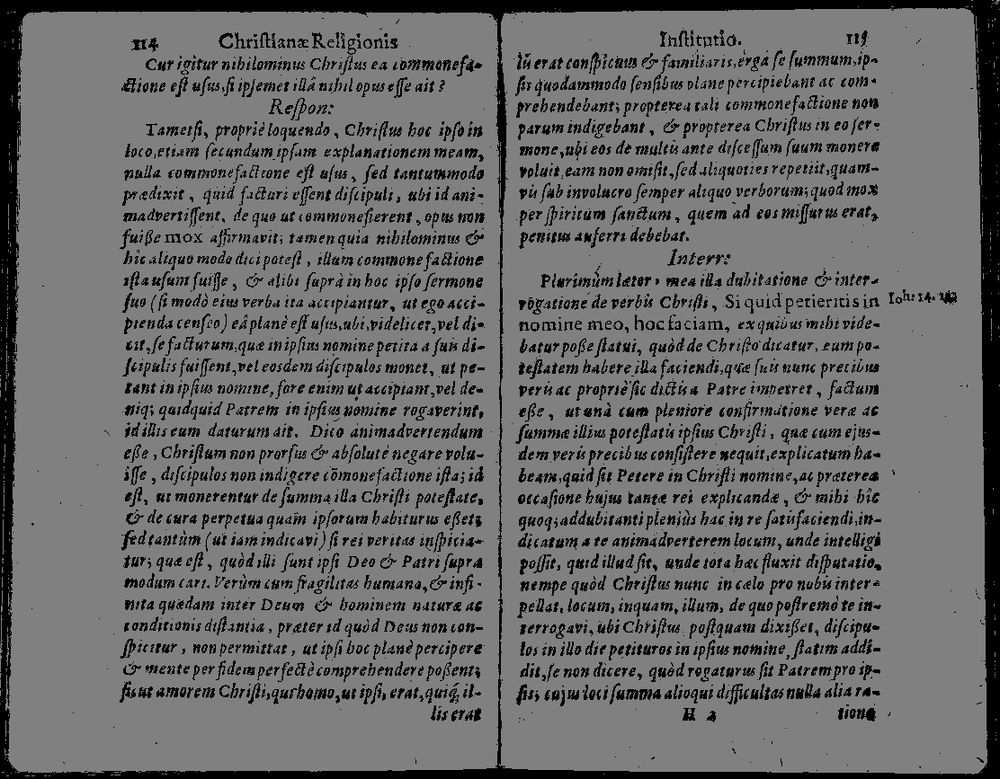 114 Christianæ Religionis
Cur igitur nihilominus Christus ea commonefa-
ctione est usus, si ipsemet illâ nihil opus esse ait?
Respon:
Tametsi, propriè loquendo, Christus hoc ipso in
loco, etiam secundum ipsam explanationem meam,
nulla commonefactione est usus, sed tantummodo
prædixit, quid facturi essent discipuli, ubi id ani-
madvertissent, de quo ut commonefierent, opus non
fuiße mox affirmavit; tamen quia nihilominus &
hîc aliquo modo dici potest, illum commonefactione
ista usum fuisse, & alibi suprà in hoc ipso sermone
suo (si modò eius verba ita accipiantur, ut ego acci-
pienda censeo) eâ planè est usus, ubi, videlicet, vel di-
cit, se facturum, quæ in ipsius nomine petita a suis di-
scipulis fuissent, vel eosdem discipulos monet, ut pe-
tant in ipsius nomine, fore enim ut accipiant, vel de-
niq; quidquid Patrem in ipsius nomine rogaverint,
id illis eum daturum ait. Dico animadvertendum
eße, Christum non prorsus & absolutè negare volu-
isse, discipulos non indigere cōmonefactione ista; id
est, ut monerentur de summa illa Christi potestate,
& de cura perpetua quam ipsorum habiturus eßet;
sed tantùm (ut iam indicavi) si rei veritas inspicia-
tur; quæ est, quòd illi sunt ipsi Deo & Patri supra
modum cari. Verùm cum fragilitas humana, & infi-
nita quædam inter Deum & hominem naturæ ac
conditionis distantia, præter id quòd Deus non con-
spicitur, non permittat, ut ipsi hoc planè percipere
& mente per fidem perfectè comprehendere poßent;
sic ut amorem Christi, qui homo, ut ipsi, erat, quiq; il-
lis erat
Institutio. 115
lis erat conspicuus & familiaris, erga se summum, ip-
sis quodammodo sensibus plane percipiebant ac com-
prehendebant; propterea tali commonefactione non
parum indigebant, & propterea Christus in eo ser-
mone, ubi eos de multis ante discessum suum monere
voluit, eam non omisit, sed aliquoties repetiit, quam-
vis sub involucro semper aliquo verborum; quod mox
per spiritum sanctum, quem ad eos missurus erat,
penitus auferri debebat.
Interr:
Plurimúm lætor, mea illa dubitatione & inter-
rogatione de verbis Christi, Si quid petieritis in
nomine meo, hoc faciam, ex quibus mihi vide-
batur poße statui, quòd de Christo dicatur, eum po-
testatem habere illa faciendi, quæ suis nunc precibus
veris ac propriè sic dictis a Patre impetret, factum
eße, ut unà cum pleniore confirmatione veræ ac
summæ illius potestatis ipsius Christi, quæ cum ejus-
dem veris precibus consistere nequit, explicatum ha-
beam, quid sit Petere in Christi nomine, ac præterea
occasione hujus tantæ rei explicandæ, & mihi hîc
quoq; addubitanti pleniùs hac in re satisfaciendi, in-
dicatum a te animadverterem locum, unde intelligi
possit, quid illud sit, unde tota hæc fluxit disputatio,
nempe quòd Christus nunc in cælo pro nobis inter-
pellat, locum, inquam, illum, de quo postremò te in-
terrogavi, ubi Christus postquam dixißet, discipu-
los in illo die petituros in ipsius nomine, statim addi-
dit, se non dicere, quòd rogaturus sit Patrem pro ip-
sis; cujus loci summa alioqui difficultas nulla alia ra-
H 2 tione
Ioh: 14.